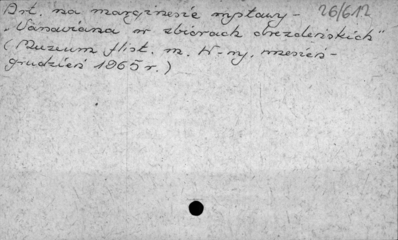 Art. na marginesie wystawy - 26/612
„Varsaviana w zbiorach drezdeńskich"
(Muzeum Hist. m. W-wy, wrzesień-
grudzień 1965 r.)